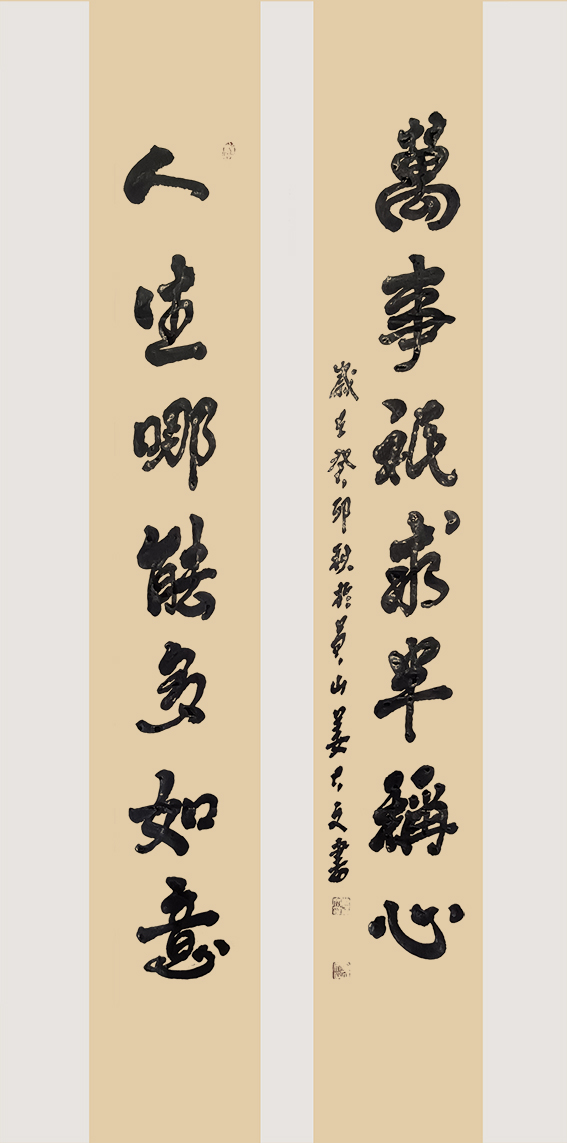 萬事祇求半稱心
歲在癸卯秋於黄山姜大文書
人生哪能多如意